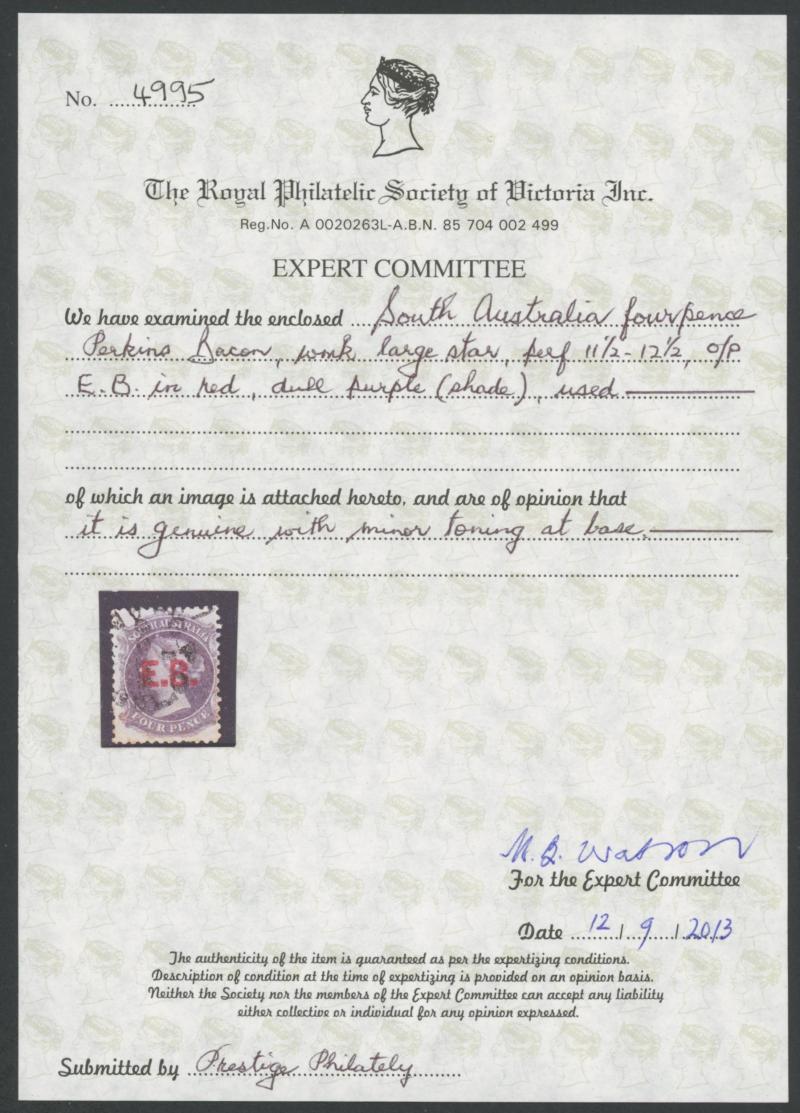 No. 4995
The Royal Philatelic Society of Victoria Inc.
Reg.No. A 0020263L-A.B.N. 85 704 002 499
EXPERT COMMITTEE
We have examined the enclosed South Australia fourpence
Perkins Bacon, wmk large star, perf 11½-12½, o/p
E.B. in red, dull purple (shade), used
of which an image is attached hereto, and are of opinion that
it is genuine with minor toning at base.
SOUTH AUSTRALIA
E.B.
FOUR PENCE
M. B. Watson
For the Expert Committee
Date 12 / 9 / 2013
The authenticity of the item is guaranteed as per the expertizing conditions.
Description of condition at the time of expertizing is provided on an opinion basis.
Neither the Society nor the members of the Expert Committee can accept any liability
either collective or individual for any opinion expressed.
Submitted by Prestige Philately